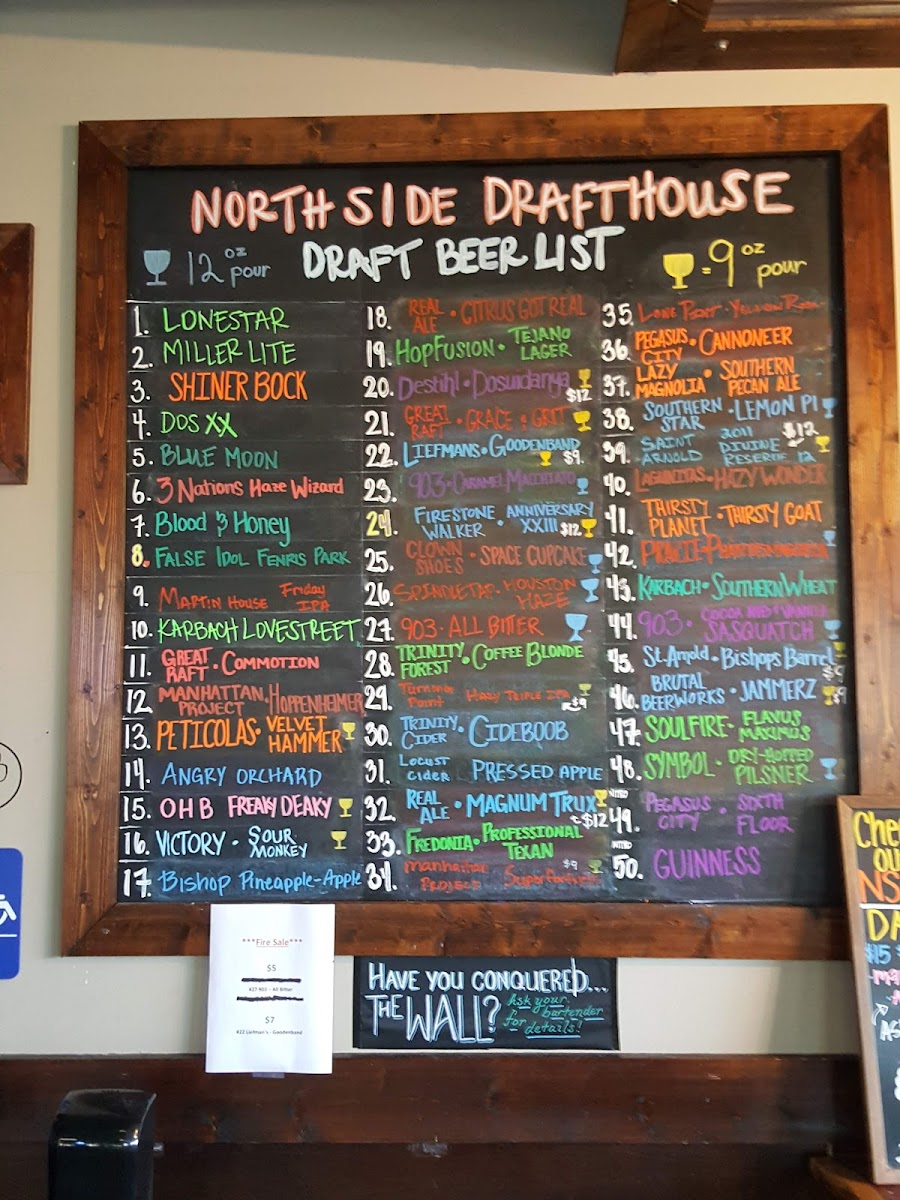 NORTHSIDE DRAFTHOUSE
DRAFT BEER LIST
12 oz pour
= 9 oz pour
1. LONESTAR
2. MILLER LITE
3. SHINER BOCK
4. DOS XX
5. BLUE MOON
6. 3 Nations Haze Wizard
7. Blood & Honey
8. FALSE IDOL FENRIS PARK
9. MARTIN HOUSE Friday IPA
10. KARBACH LOVESTREET
11. GREAT RAFT • COMMOTION
12. MANHATTAN PROJECT • HOPPENHEIMER
13. PETICOLAS • VELVET HAMMER
14. ANGRY ORCHARD
15. OHB FREAKY DEAKY
16. VICTORY • SOUR MONKEY
17. Bishop Pineapple-Apple
18. REAL ALE • CITRUS GOT REAL
19. HOPFUSION • TEJANO LAGER
20. Destihl • Dosvidanya $12
21. GREAT RAFT • GRACE & GRIT
22. LIEFMANS • GOODENBAND $9
23. 903 • CARAMEL MACCHIATO
24. FIRESTONE WALKER • ANNIVERSARY XXIII $12
25. CLOWN SHOES • SPACE CUPCAKE
26. SPINDLETAP • HOUSTON HAZE
27. 903 • ALL BITTER
28. TRINITY FOREST • COFFEE BLONDE
29. Turning Point Hazy Triple IPA $9
30. TRINITY CIDER • CIDEBOOB
31. LOCUST CIDER PRESSED APPLE
32. REAL ALE • MAGNUM TRUX $12
33. FREDONIA • PROFESSIONAL TEXAN
34. Manhattan Project $9
35. LONE PINT • YELLOW ROSE
36. PEGASUS CITY • CANNONEER
37. LAZY MAGNOLIA • SOUTHERN PECAN ALE
38. SOUTHERN STAR • LEMON PI
39. SAINT ARNOLD 2011 DIVINE RESERVE 12 $12
40. LAGUNITAS • HAZY WONDER
41. THIRSTY PLANET • THIRSTY GOAT
42.
43. KARBACH • SOUTHERN WHEAT
44. 903 • SASQUATCH
45. St. Arnold • Bishops Barrel $9
46. BRUTAL BEERWORKS • JAMMERZ $9
47. SOULFIRE • FLAVUS MAXIMUS
48. SYMBOL • DRY-HOPPED PILSNER
NITRO 49. PEGASUS CITY • SIXTH FLOOR
NITRO 50. GUINNESS
***Fire Sale***
$5
#27 903 - All Bitter
$7
#22 Liefman's - Goodenband
HAVE YOU CONQUERED...
THE WALL?
Ask your bartender for details!